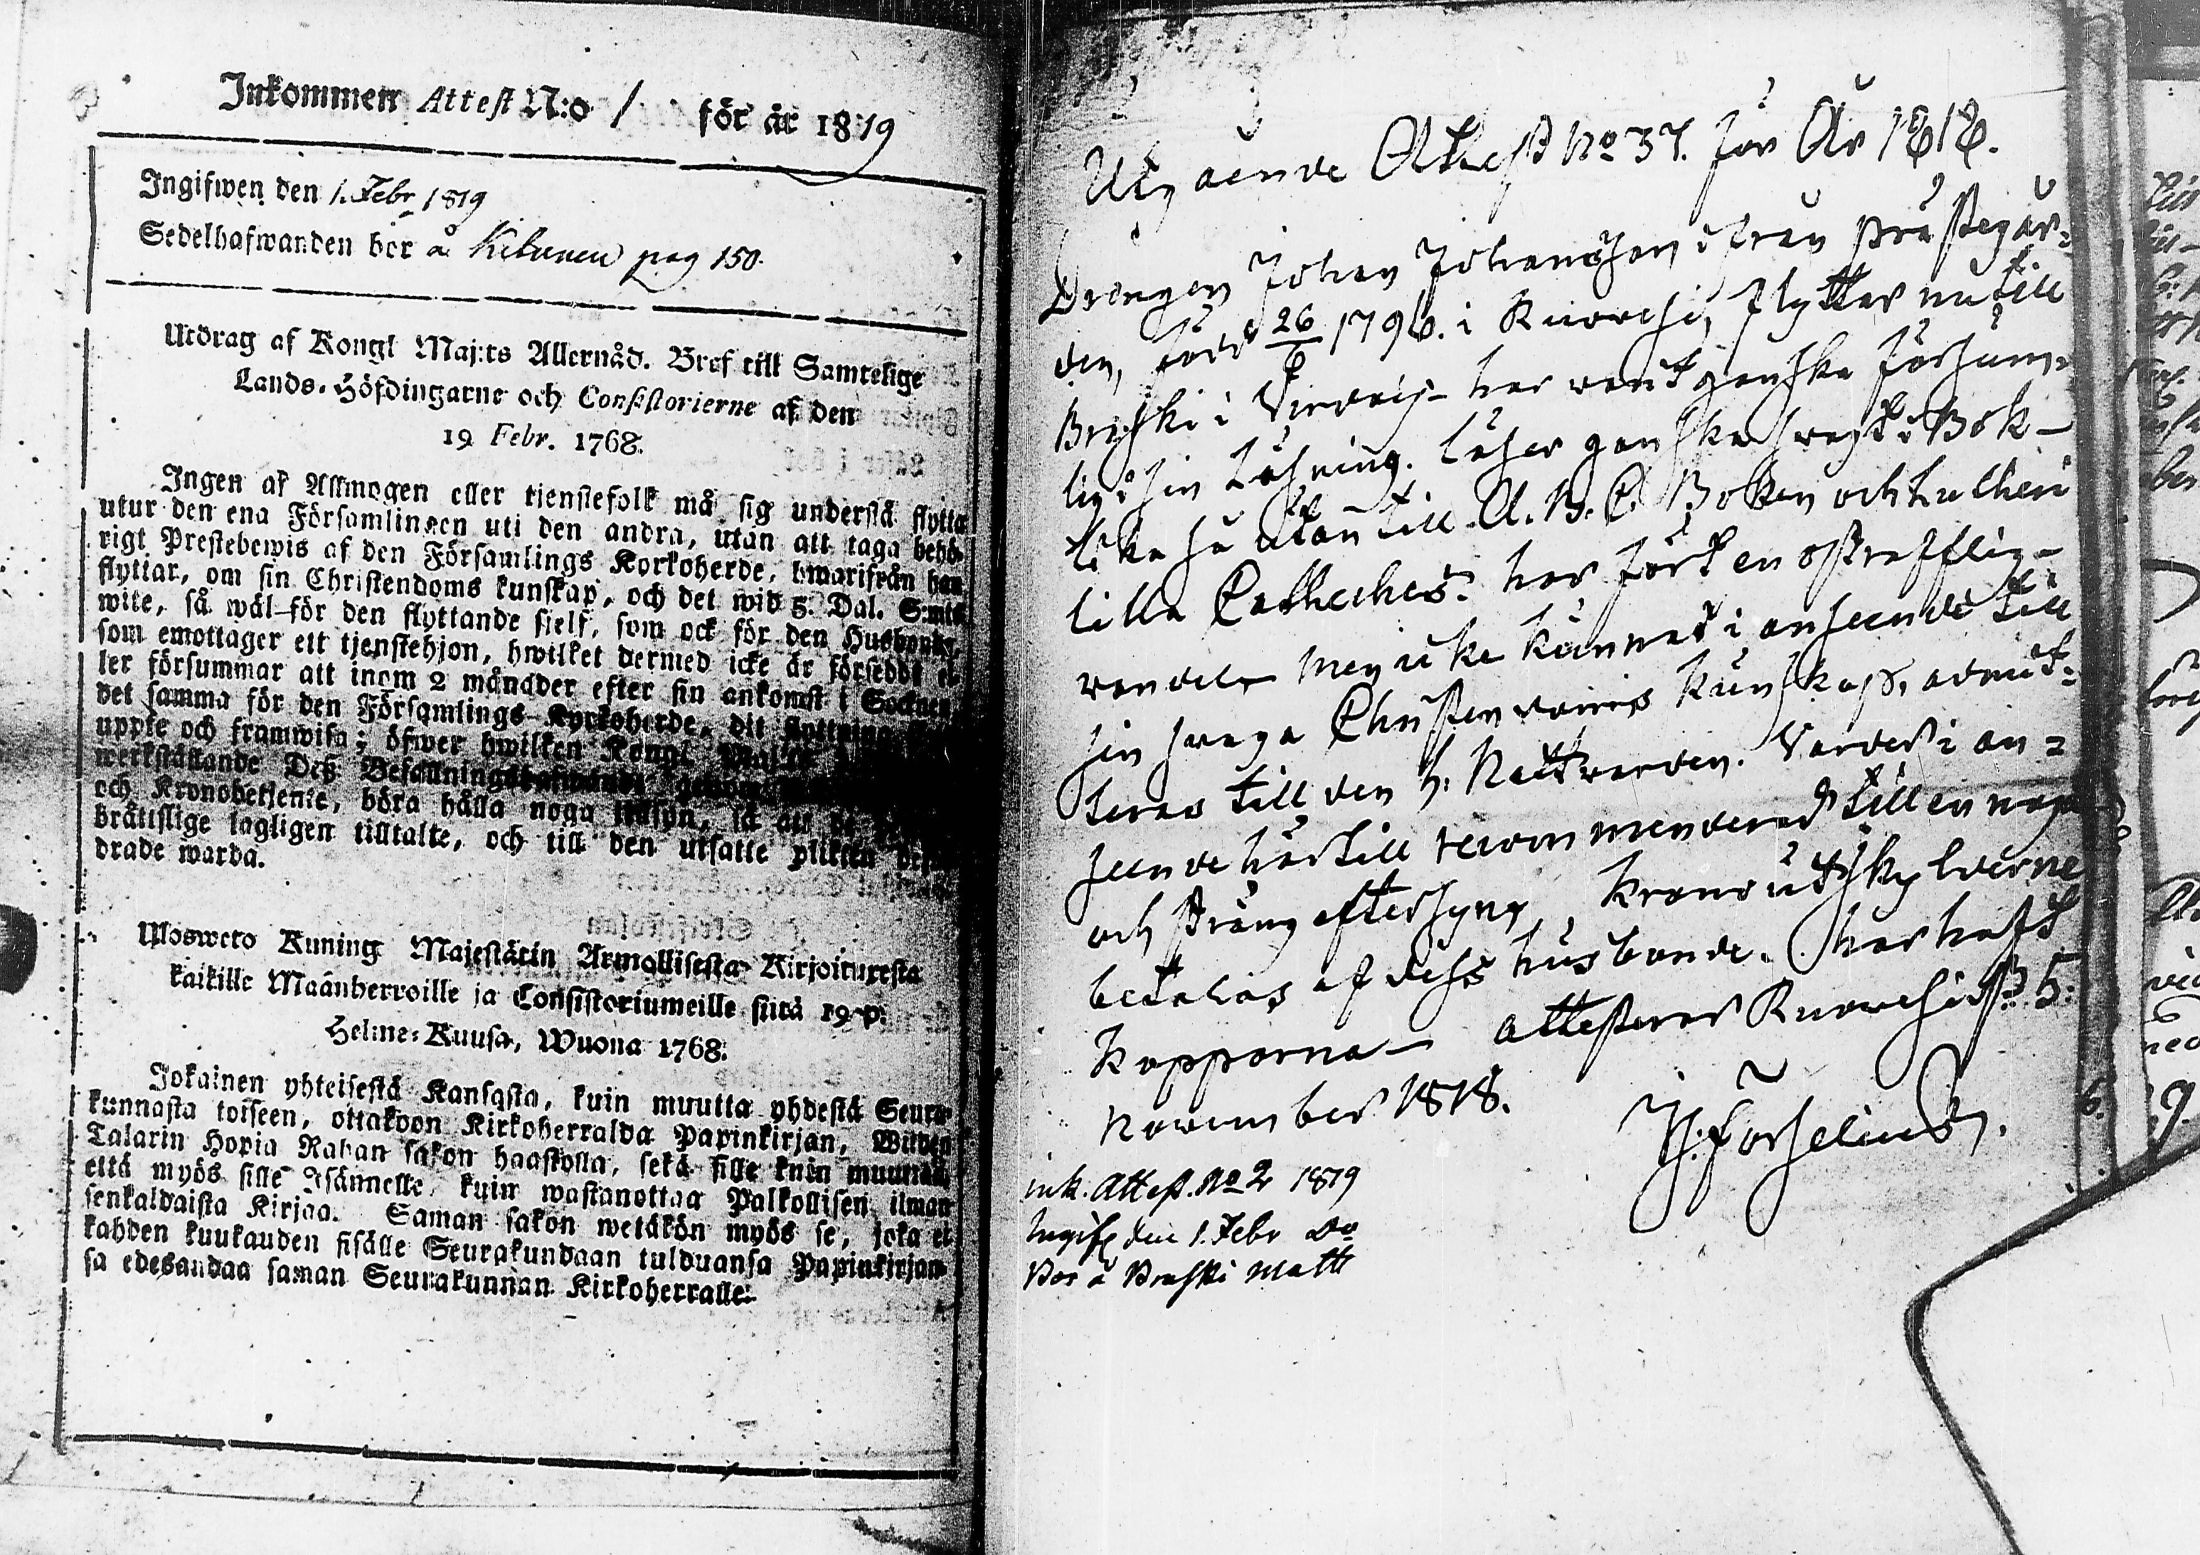 Inkommen Attest N:o 1 för år 1819
Ingifwen den 1. Febr 1819
Sedelhafwanden bor å Kitunen pag 150.
Utdrag af Kongl Maj:ts Allernåd. Bref till Samtelige
Lands-Höfdingarne och Consistorierne af den
19 Febr. 1768.
Ingen af Allmogen eller tienstefolk må sig understå flytta
utur den ena Församlingen uti den andra, utan att taga behö-
rigt Prestebewis af den Församlings Kyrkoherde, hwarifrån han
flyttar, om sin Christendoms kunskap, och det wid 5 Dal. S:mts
wite, så wäl för den flyttande sielf, som ock för den Husbonde,
som emottager ett tjenstehjon, hwilket dermed icke är försedt el-
ler försummar att inom 2 månader efter sin ankomst i Socknen
det samma för den Församlings Kyrkoherde, dit flyttning
uppte och framwisa; öfwer hwilken Kongl Maj:ts
werkställande Deß Befallningshafwande
och Kronobetjente, böra hålla noga tillsyn, så att de
brättslige lagligen tilltalte, och till den utsatte plikten
drade warda.
Ulosweto Kuning Majestätin Armollisesta Kirjoituxesta
kaikille Maanherroille ja Consistoriumeille siitä 19 p:
Helme-Kuusa, Wuona 1768.
Jokainen yhteisestä Kansasta, kuin muutta yhdestä Seura-
kunnasta toiseen, ottakoon Kirkoherralda Papinkirjan, Wiiden
Talarin Hopia Rahan sakon haastolla, sekä sille kuin muuttaa,
että myös sille Isännelle, kuin wastanottaa Palkollisen ilman
senkaldaista Kirjaa. Saman sakon wetäkön myös se, joka ei
kahden kuukauden sisälle Seurakundaan tulduansa Papinkirjan-
sa edesandaa saman Seurakunnan Kirkoherralle.
Utgående Attest No 37. för År 1818.
Drängen Johan Johansson ifrån Prästegår-
den, född 26/6 1796. i Kuorehi, flyttar nu till
Braski i Virdois har varit ganska försum-
lig i sin Läsning. Läser ganska swagt i Bok
lika så utan till A. B. C. Boken och Lutheri
lilla Catheches. har fört en ostrafflig
vandel men icke kunnat i anseende till
sin swaga Christendoms kunskap, admit-
teras till den H. Nattvarden. Varder i an-
seende härtill recommenderad till en noga
och sträng eftersyn, Kronoutskylderne
betalas af dess husbonde. har haft
Kopporna attesterar Kuorehi d. 5.
November 1818.
H: Forselius
ink. Attest. No 2 1819
Ingif. den 1. Febr Do
Bor å Braski Matts